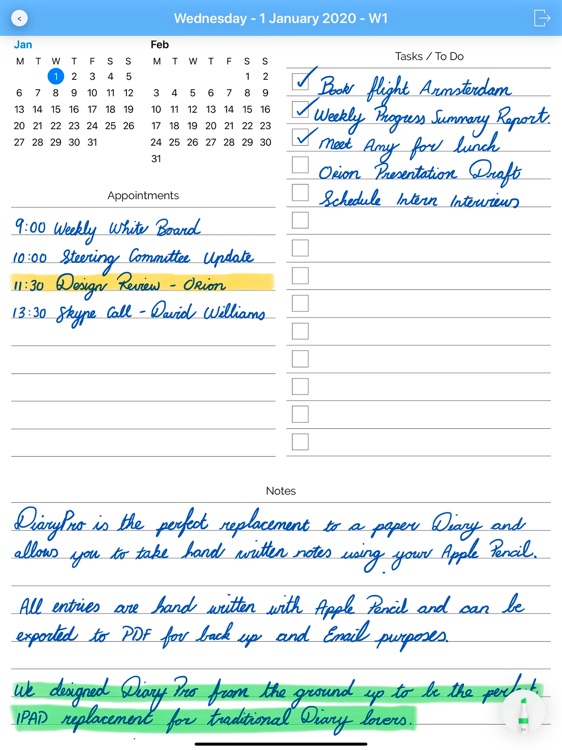 Wednesday - 1 January 2020 - W1
Jan
M T W T F S S
1 2 3 4 5
6 7 8 9 10 11 12
13 14 15 16 17 18 19
20 21 22 23 24 25 26
27 28 29 30 31
Feb
M T W T F S S
1 2
3 4 5 6 7 8 9
10 11 12 13 14 15 16
17 18 19 20 21 22 23
24 25 26 27 28 29 30
31
Appointments
9:00 Weekly White Board
10:00 Steering Committee Update
11:30 Design Review - Orion
13:30 Skype Call - David Williams
Tasks / To Do
Book flight Amsterdam
Weekly Progress Summary Report.
Meet Any for lunch
Orion Presentation Draft
Schedule Intern Interviews
Notes
DiaryPro is the perfect replacement to a paper Diary and
allows you to take hand written notes using your Apple Pencil.
All entries are hand written with Apple Pencil and can be
exported to PDF for back up and Email purposes.
We designed Diary Pro from the ground up to be the perfect
IPAD replacement for traditional Diary lovers.